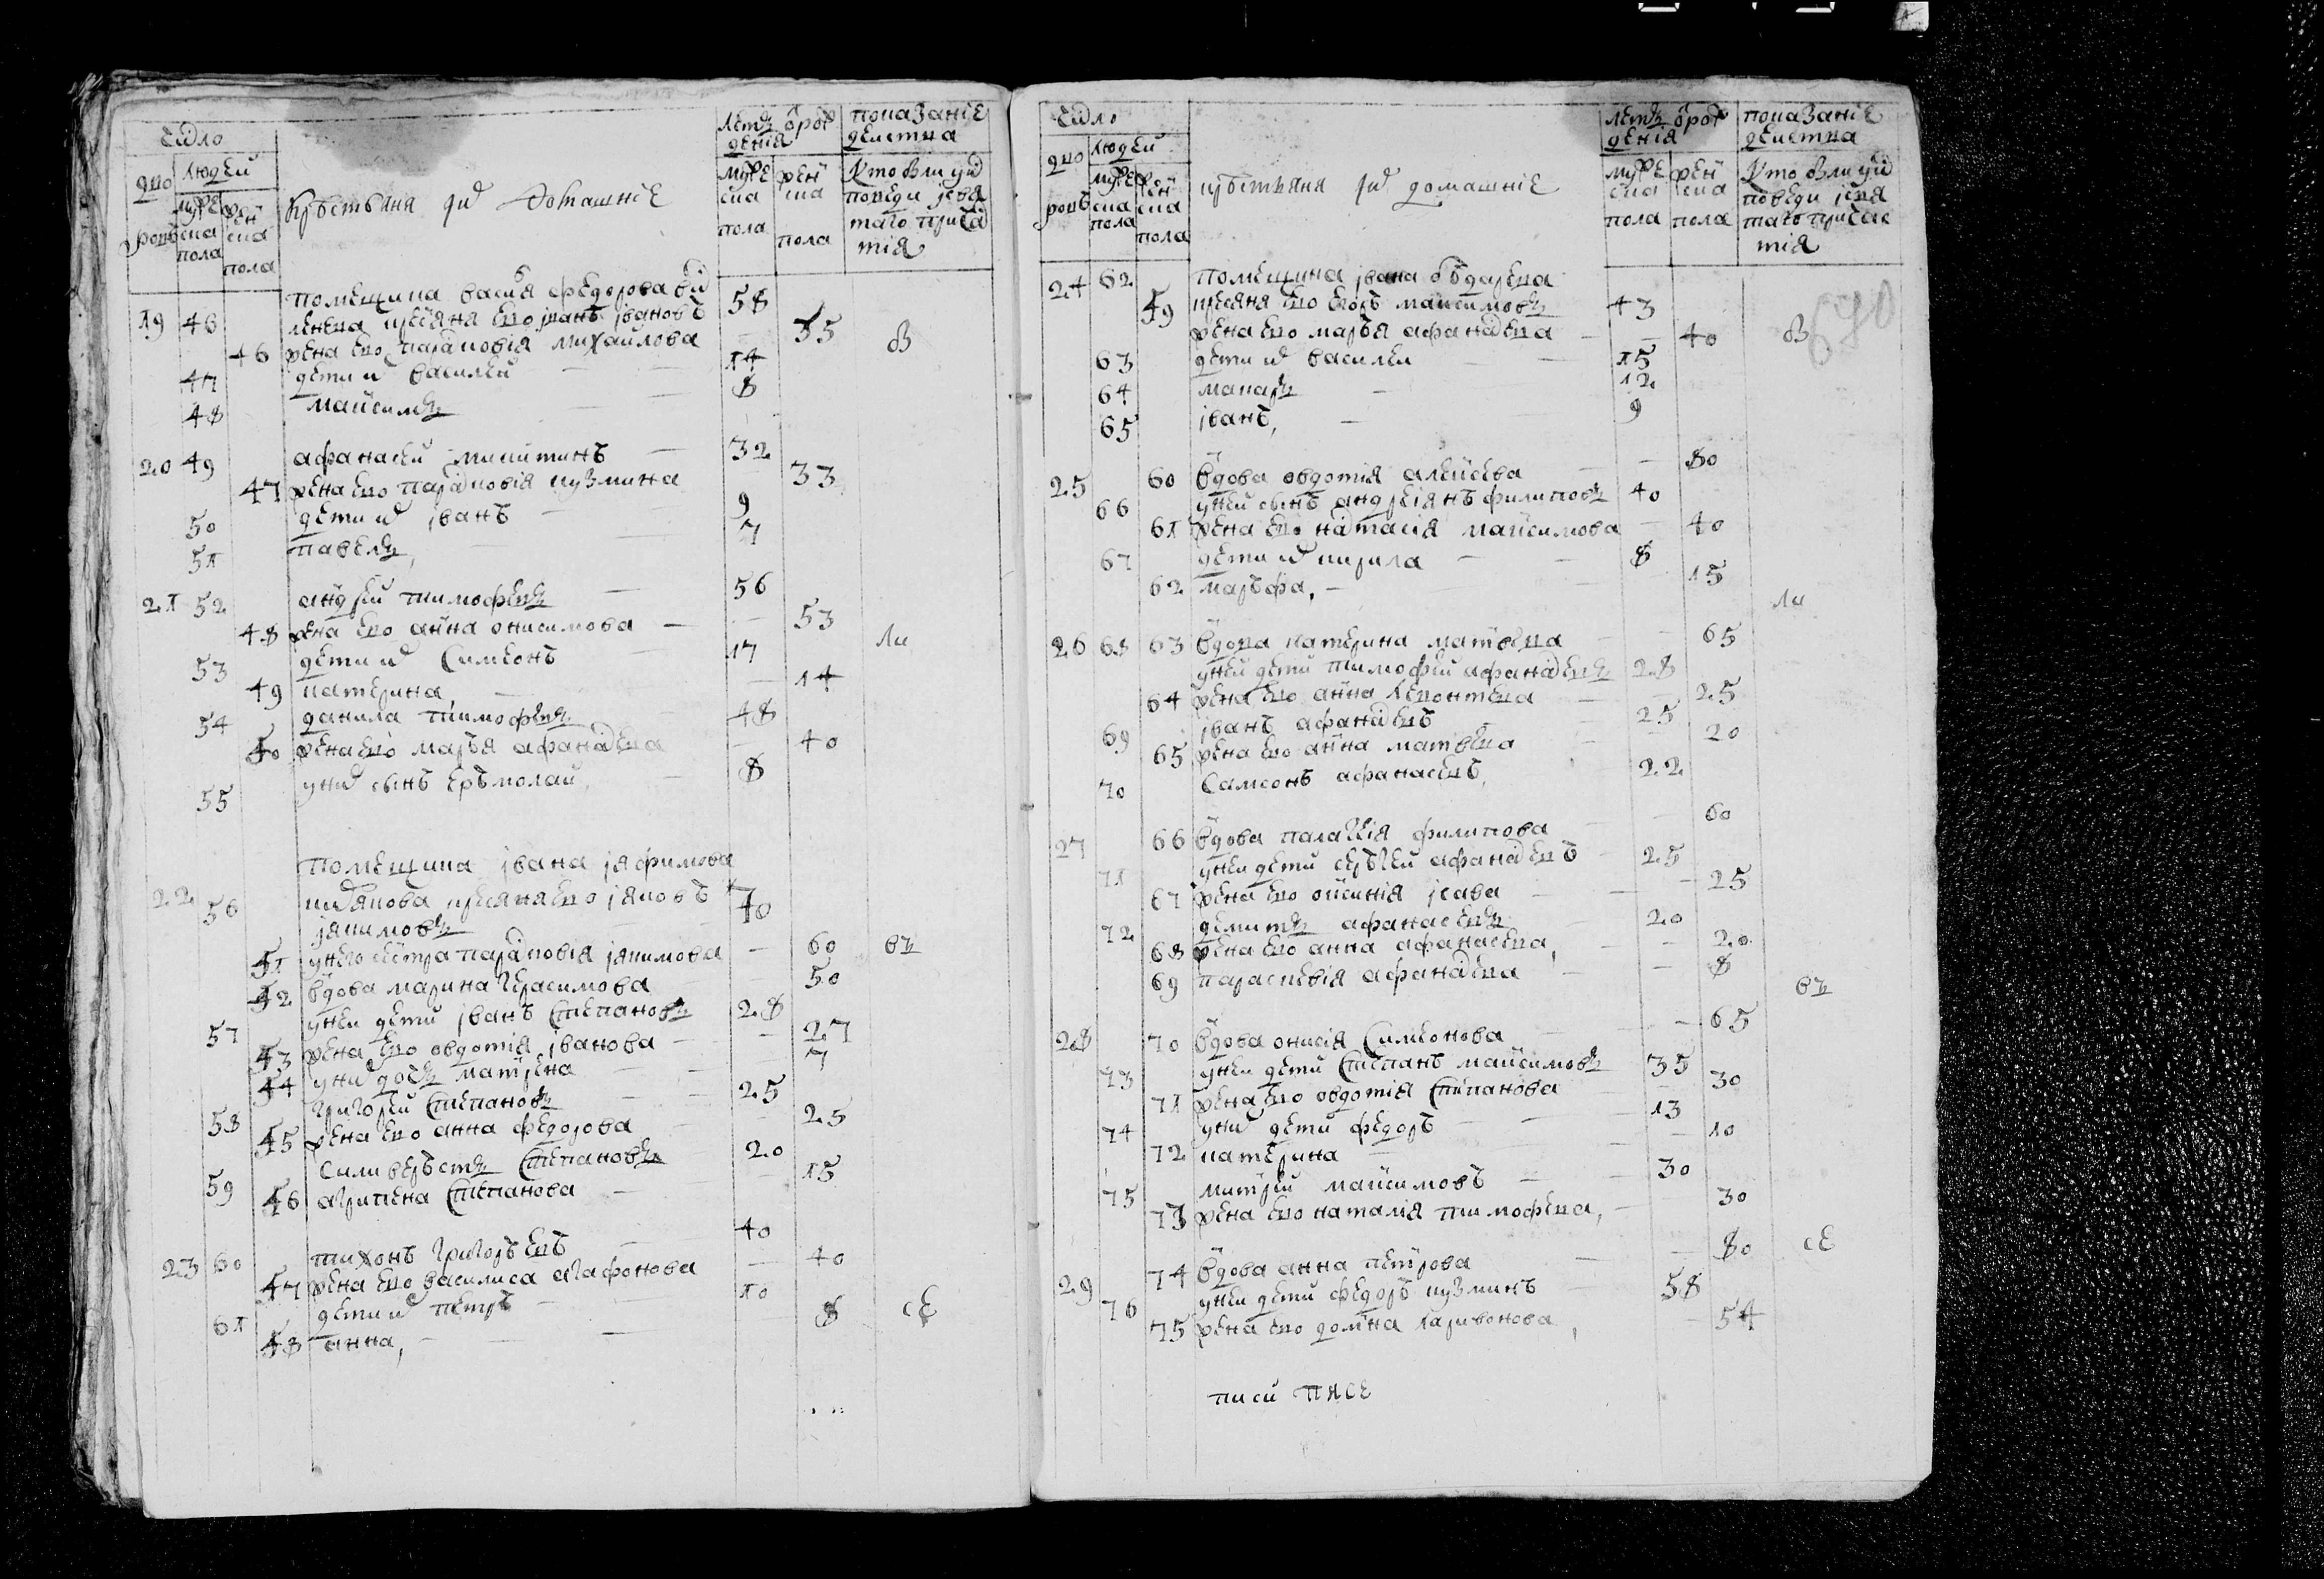 число
дво
ровъ
людей
муже
ска
пола
жен
ска
пола
крестьяня и домашние
летъ от рож
дения
муже
ска
пола
жен
ска
пола
показание
действа
кто был у ис
поведи и свя
таго причас
тия
помещика василя федорова
19 46 крестяня ево иванъ ивановъ 58
46 жена ево парасковия михаилова 35 вз
47 дети их василеи 14
48 максимъ 8
20 49 афанасеи никитинъ 32
47 жена ево парасковия кузмина 33
50 дети их иванъ 9
51 павелъ, 7
21 52 андреи тимофеевъ 56
48 жена ево анна онисимова 53
53 дети их симеонъ 17 ли
49 катерина, 14
54 данила тимофеевъ 48
50 жена ево маръя афанасева 40
55 у них сынъ еръмолаи, 8
помещика ивана
22 56 крестяня ево яковъ 70
якимовъ
51 у него сестра парасковия якимова 60 въ
52 вдова марина герасимова 50
57 у неи дети иванъ степановъ 28
53 жена ево овдотия иванова 27
54 у них дочь матрена 7
58 григореи степановъ 25
55 жена ево анна федорова 25
59 силиверъстъ степановъ 20
56 агрипена степанова 15
23 60 тихонъ григоръевъ 40
57 жена ево василиса агафонова 40
61 дети их петръ 10
58 анна, 8 се
число
дво
ровъ
людей
муже
ска
пола
жен
ска
пола
крестьяня и домашние
летъ от рож
дения
муже
ска
пола
жен
ска
пола
показание
действа
кто был у ис
поведи и свя
таго причас
тия
690
помещика ивана
24 62 кресяня ево егоръ максимовъ 43
59 жена ево маръя афанасева 40 вз
63 дети их василеи 15
64 макаръ 12
65 иванъ, 9
25 60 вдова овдотия алексева 80
66 у неи сынъ андреянъ филиповъ 40
61 жена ево настасия максимова 40
67 дети их кирила 8
62 маръфа, 15
ли
26 68 63 вдова катерина матвева 65
у неи дети тимофеи афанасевъ 28
64 жена ево анна левонтева 25
69 иванъ афанасевъ 25
65 жена ево анна матвева 20
70 самсонъ афанасевъ, 22
27 66 вдова палагия филипова 60
71 у неи дети серъгеи афанасевъ 25
67 жена ево оксиния исава 25
72 демитъ афанасевъ 20
68 жена ево анна афанасева, 20
69 параскевия афанасева 8
въ
28 70 вдова онисия симеонова 65
73 у неи дети степанъ максимовъ 35
71 жена ево овдотия степанова 30
74 у них дети федоръ 13
72 катерина 10
75 митреи максимовъ 30
73 жена ево наталия тимофева, 30
29 74 вдова анна петрова 80 се
76 у неи дети федоръ кузминъ 58
75 жена ево домна ларивонова, 54